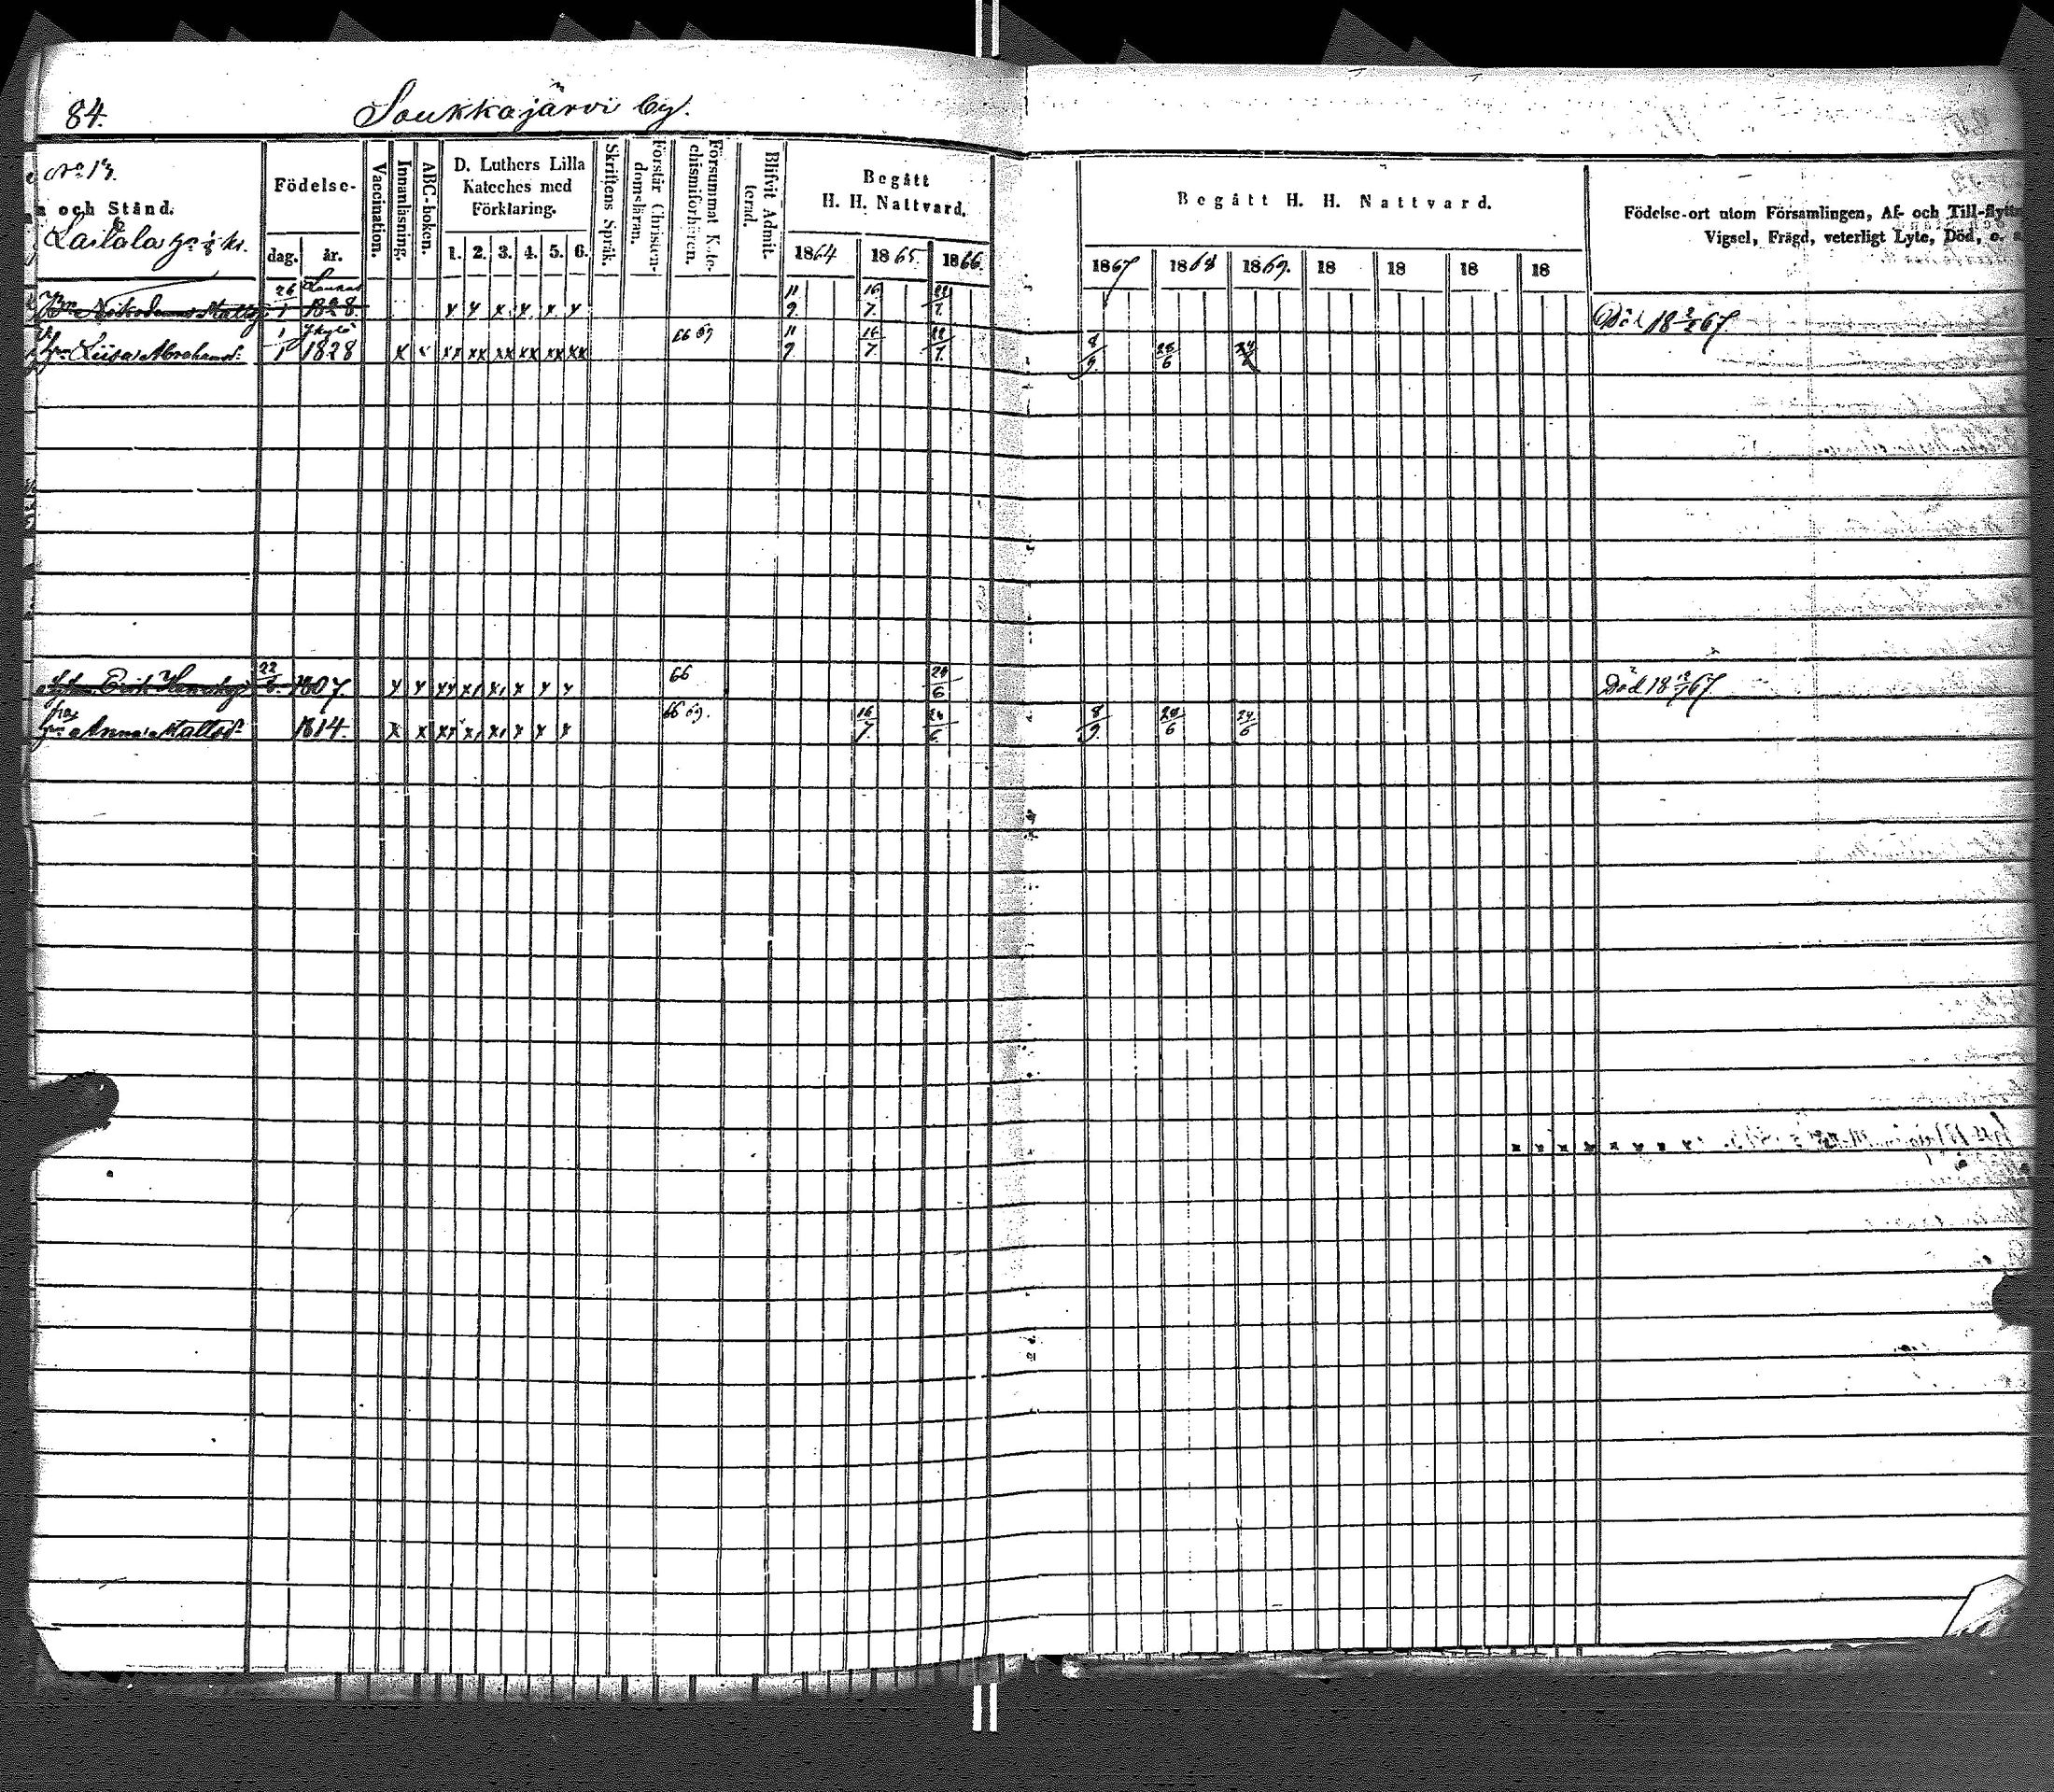 84. Saukkajärvi by.
No 13.
n och Stånd.
Födelse-
dag. år.
Vaccination.
Innanläsning.
ABC-boken.
D. Luthers Lilla
Kateches med
Förklaring.
1. 2. 3. 4. 5. 6.
Skriftens Språk.
Förstår Christen-
domsläran.
Försummat Kate-
chismiförhören.
Blifvit Admit-
terad.
Begått
H. H. Nattvard.
1864 1865. 1866.
Begått H. H. Nattvard.
1867 1868 1869. 18 18 18 18
Födelse-ort utom Församlingen, Af- och Till-flyttn
Vigsel, Frägd, veterligt Lyte, Död, o. s
Laitala
Nikodemus Mattss 26/1 1828. x x x x x x 11/9. 16/7. 22/7. Död 18 67
Liisa Abrahamsd: 1/1 1828 x x xx xx xx xx xx xx 66 69 11/9 16/7. 22/7. 8/9. 28/6 24/6
Erik 22/6. 1807. x x xx x x x x x 66 24/6 Död 18 67
hu Anna Mattsd: 1814. x x xx x x x x x 66 69. 16/7. 24/6. 8/9. 28/6 24/6